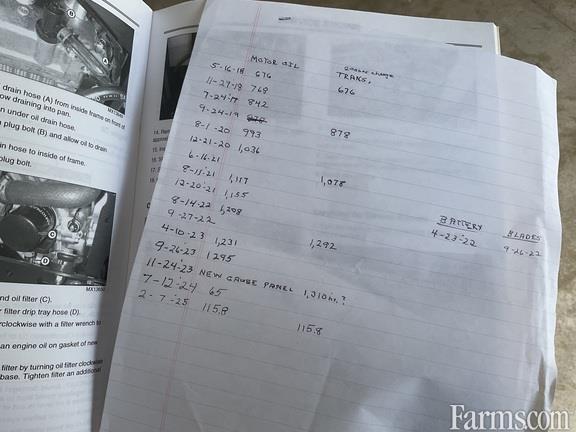 drain hose (A) from inside frame on front of
ow draining into pan.
n under oil drain hose.
plug bolt (B) and allow oil to drain
in hose to inside of frame.
plug bolt.
MX13650
nd oil filter (C).
r filter drip tray hose (D).
rclockwise with a filter wrench to
an engine oil on gasket of new
filter by turning oil filter clockwise
base. Tighten filter an additional
MOTOR OIL
TRANS.
5-16-18 676 676
11-27-18 768
7-24-19 842
9-24-19 878
8-1-20 993 878
12-21-20 1,036
6-16-21
8-15-21 1,117 1,078
12-20-21 1,155
8-14-22 1,208
9-27-22
4-10-23 1,231 1,292
9-26-23 1295
11-24-23 NEW GAUGE PANEL 1,310 hr.?
7-12-24 65
2-7-25 115.8 115.8
BATTERY
4-23-22
BLADES
9-26-22
Farms.com